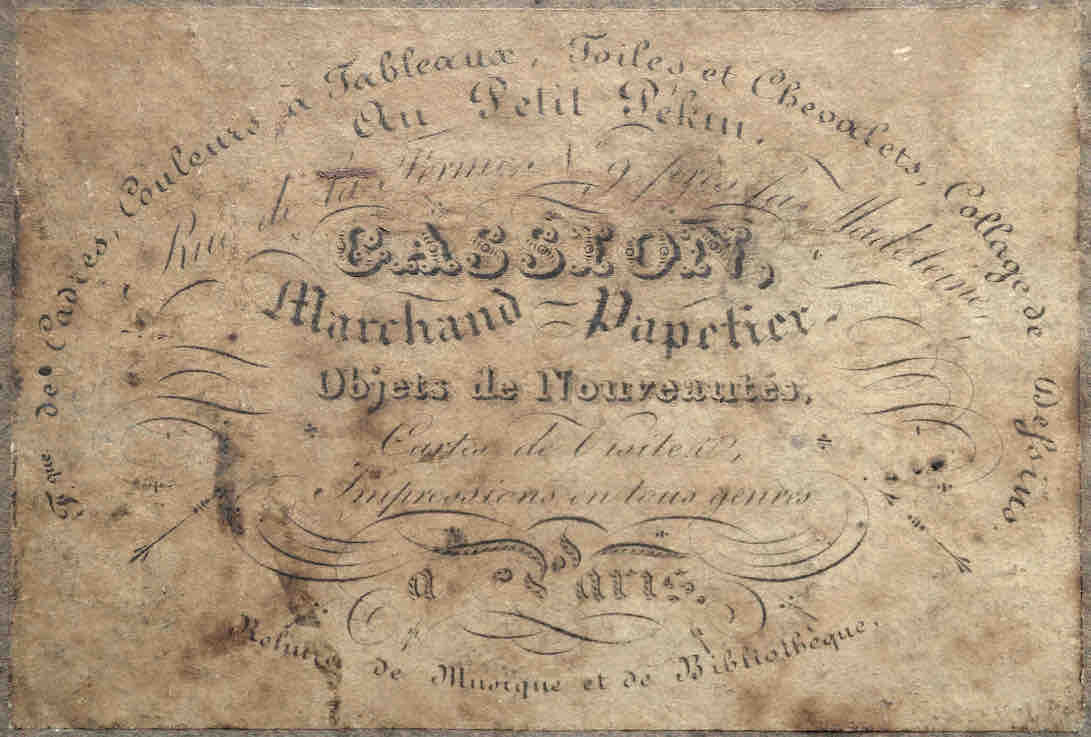 F.que de Cadres, Couleurs à Tableaux, Toiles et Chevalets, Collage de Dessins.
Au Petit Pékin,
Rue de la 9 près la Madeleine,
CASSION,
Marchand = Papetier.
Objets de Nouveautés,
Cartes de Visite &,
Impressions en tous genres
à Paris.
Reliure de Musique et de Bibliothèque.